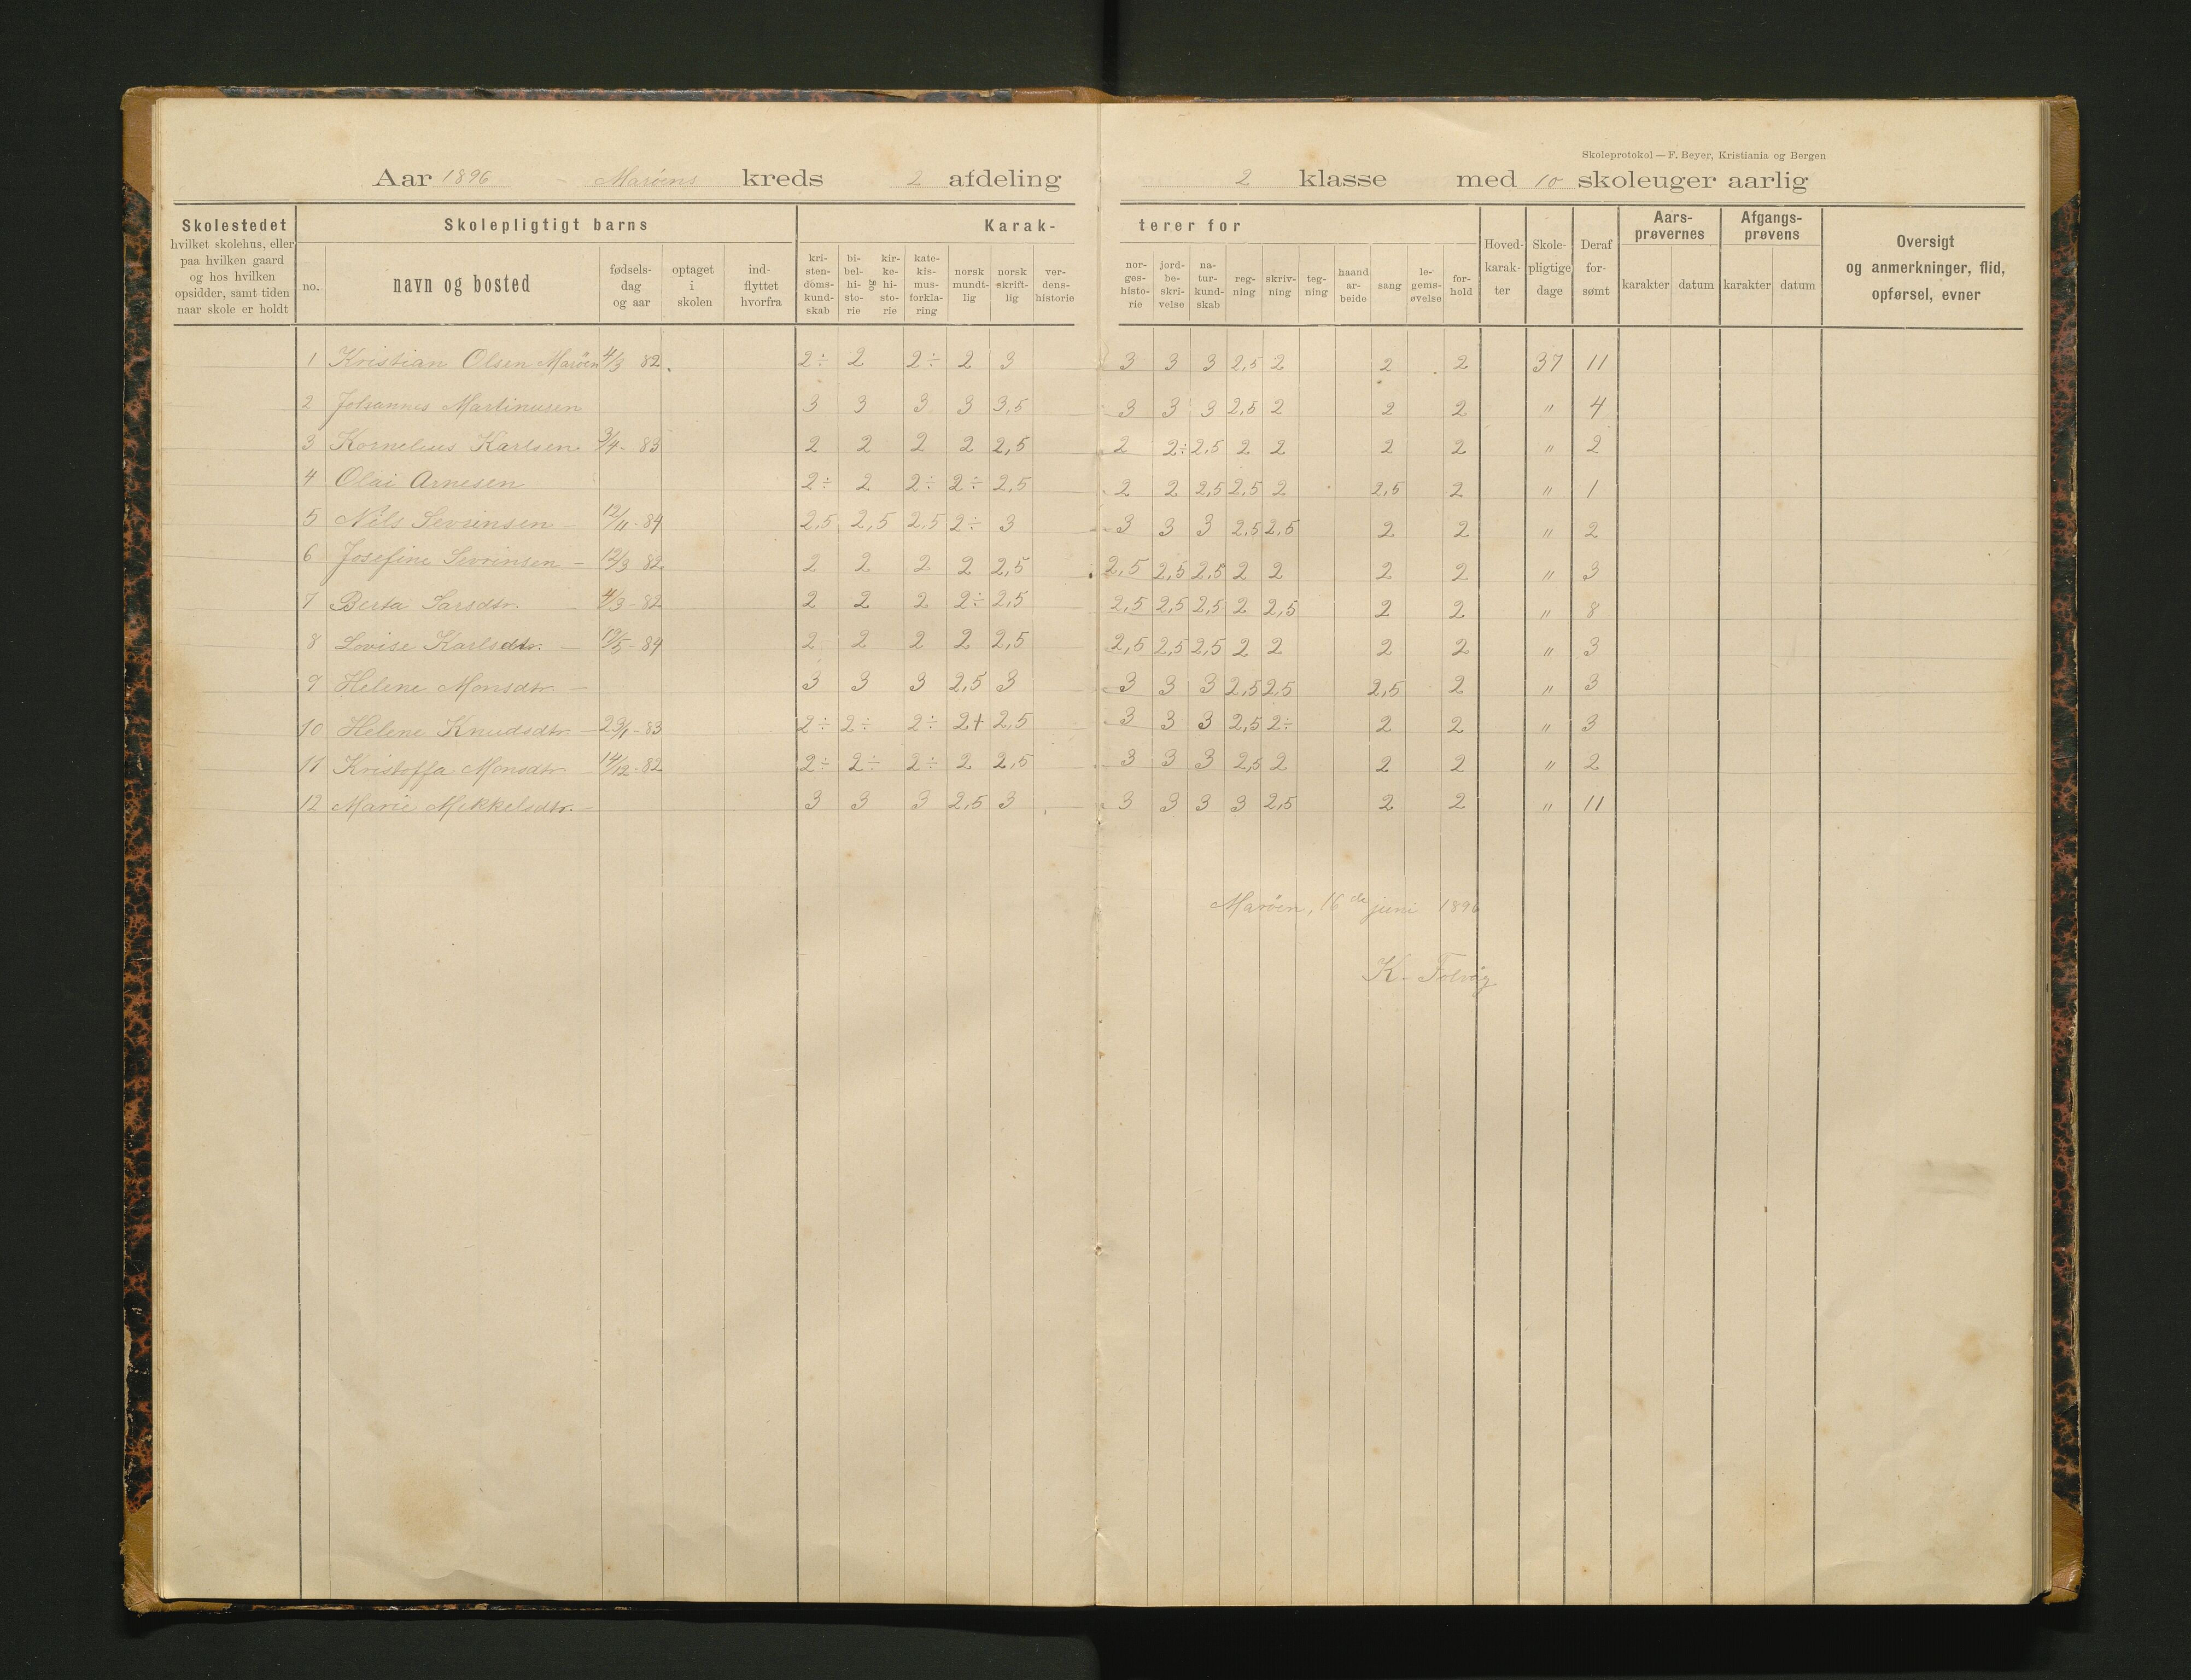 Skoleprotokol — F. Beyer, Kristiania og Bergen
Aar 1896 Marøens kreds 2 afdeling 2 klasse med 10 skoleuger aarlig
Skolestedet
hvilket skolehus, eller
paa hvilken gaard
og hos hvilken
opsidder, samt tiden
naar skole er holdt
Skolepligtigt barns
no.
navn og bosted
fødsels-
dag
og aar
optaget
i
skolen
ind-
flyttet
hvorfra
Karak-
kri-
sten-
doms-
kund-
skab
bi-
bel-
hi-
sto-
rie
og
kir-
ke-
hi-
sto-
rie
kate-
kis-
mus-
forkla-
ring
norsk
mundt-
lig
norsk
skrift-
lig
ver-
dens-
historie
terer for
nor-
ges-
histo-
rie
jord-
be-
skri-
velse
na-
tur-
kund-
skab
reg-
ning
skriv-
ning
teg-
ning
haand
ar-
beide
sang
le-
gems-
øvelse
for-
hold
Hoved-
karak-
ter
Skole-
pligtige
dage
Deraf
for-
sømt
Aars-
prøvernes
karakter datum
Afgangs-
prøvens
karakter datum
Oversigt
og anmerkninger, flid,
opførsel, evner
1 Kristian Olsen Marøen 4/3 82. 2÷ 2 2÷ 2 3 3 3 3 2,5 2 2 2 37 11
2 Johannes Martinusen 3 3 3 3 3,5 3 3 3 2,5 2 2 2 " 4
3 Kornelius Karlsen 3/4- 83 2 2 2 2 2,5 2 2÷ 2,5 2 2 2 2 " 2
4 Olai Arnesen 2÷ 2 2÷ 2÷ 2,5 2 2 2,5 2,5 2 2,5 2 " 1
5 Nils Sevrinsen - 12/11-84 2,5 2,5 2,5 2÷ 3 3 3 3 2,5 2,5 2 2 " 2
6 Josefine Sevrinsen - 12/3 82 2 2 2 2 2,5 2,5 2,5 2,5 2 2 2 2 " 3
7 Berta Larsdtr. - 4/3-82 2 2 2 2÷ 2,5 2,5 2,5 2,5 2 2,5 2 2 " 8
8 Lovise Karlsdtr. - 19/5-84 2 2 2 2 2,5 2,5 2,5 2,5 2 2 2 2 " 3
9 Helene Monsdtr. - 3 3 3 2,5 3 3 3 3 2,5 2,5 2,5 2 " 3
10 Helene Knudsdtr. - 23/1-83 2÷ 2÷ 2÷ 2+ 2,5 3 3 3 2,5 2÷ 2 2 " 3
11 Kristoffa Monsdtr - 14/12-82 2÷ 2÷ 2÷ 2 2,5 3 3 3 2,5 2 2 2 " 2
12 Marie Mikkelsdtr. - 3 3 3 2,5 3 3 3 3 3 2,5 2 2 " 11
Marøen, 16de juni 1896
K. Tolvåg